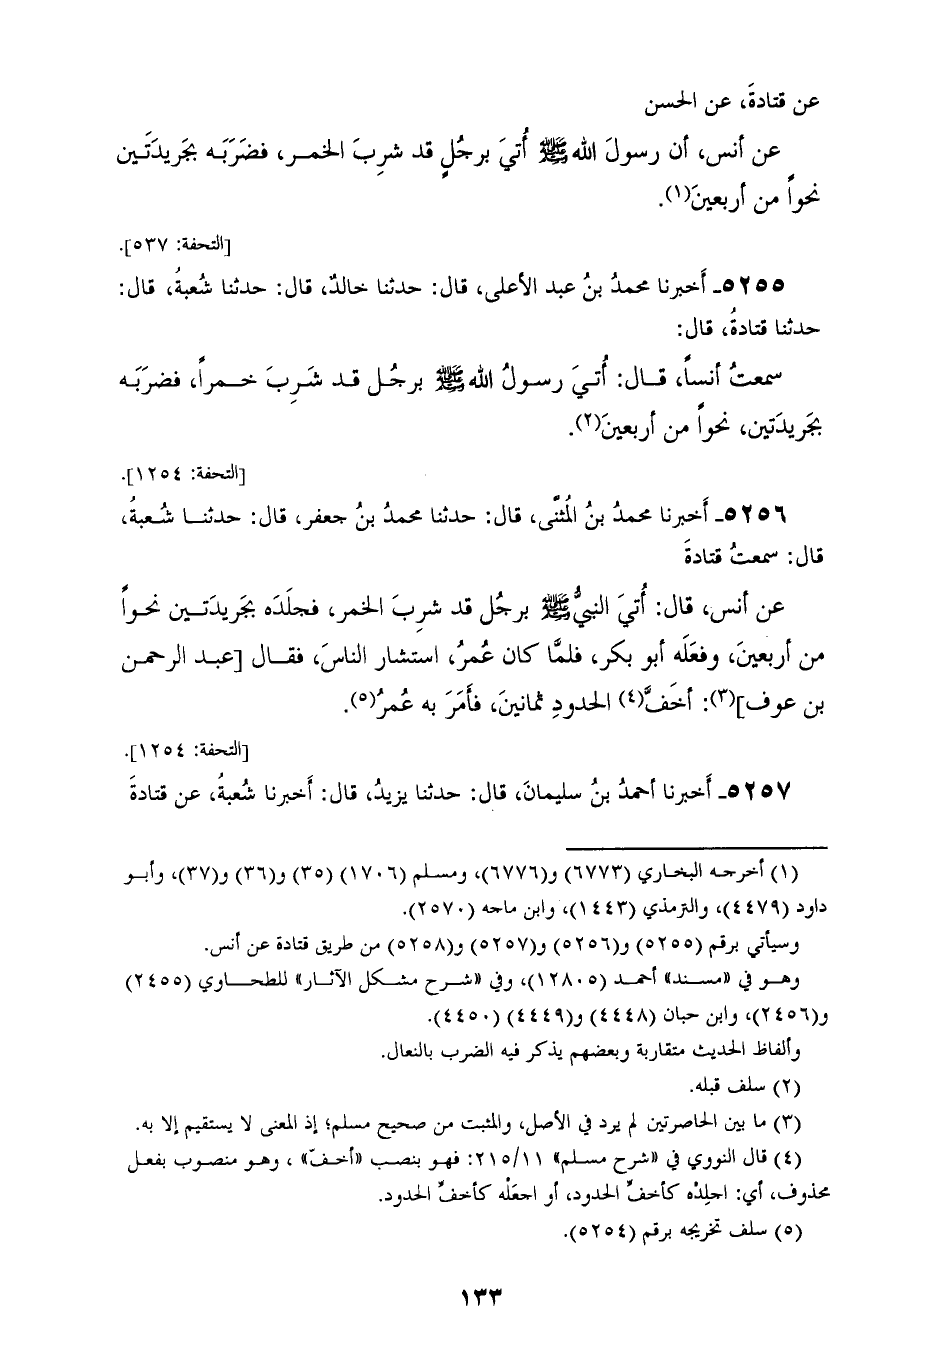 عن قتادةَ، عن الحسن
عن أنس، أن رسولَ الله ﷺ أُتيَ برجُلٍ قد شرِبَ الخمـر، فضَرَبَـه بجَريدَتَـين
نحواً من أربعينَ(١).
[التحفة: ٥٣٧].
٥٢٥٥ـ أَخبرنا محمدُ بنُ عبد الأعلى، قال: حدثنا خالدٌ، قال: حدثنا شُعبةُ، قال:
حدثنا قتادةُ، قال:
سمعتُ أنساً، قـال: أُتـيَ رسـولُ الله ﷺ برجُـل قـد شَـرِبَ خـمـراً، فضرَبَـه
بجَريدَتين، نحواً من أربعينَ(٢).
[التحفة: ١٢٥٤].
٥٢٥٦ـ أَخبرنا محمدُ بنُ المُثنَّى، قال: حدثنا محمدُ بنُ جعفر، قال: حدثنـا شُـعبةُ،
قال: سمعتُ قتادةَ
عن أنس، قال: أُتيَ النبيُّ ﷺ برجُل قد شرِبَ الخمر، فجلَدَه بجَريدَتَـين نحـواً
من أربعينَ، وفعَلَه أبو بكر، فلمَّا كان عُمرُ، استشار الناسَ، فقـال [عبـد الرحمـن
بن عوف](٣): أخَفَّ(٤) الحدودِ ثمانينَ، فأَمَرَ به عُمرُ(٥).
[التحفة: ١٢٥٤].
٥٢٥٧ـ أَخبرنا أحمدُ بنُ سليمانَ، قال: حدثنا يزيدُ، قال: أَخبرنا شُعبةُ، عن قتادةَ
(١) أخرجـه البخـاري (٦٧٧٣) و(٦٧٧٦)، ومسلم (١٧٠٦) (٣٥) و(٣٦) و(٣٧)، وأبـو
داود (٤٤٧٩)، والترمذي (١٤٤٣)، وابن ماجه (٢٥٧٠).
وسيأتي برقم (٥٢٥٥) و(٥٢٥٦) و(٥٢٥٧) و(٥٢٥٨) من طريق قتادة عن أنس.
وهـو في «مسـند» أحمـد (١٢٨٠٥)، وفي «شـرح مشـكل الآثـار» للطحـاوي (٢٤٥٥)
و(٢٤٥٦)، وابن حبان (٤٤٤٨) و(٤٤٤٩) (٤٤٥٠).
وألفاظ الحديث متقاربة وبعضهم يذكر فيه الضرب بالنعال.
(٢) سلف قبله.
(٣) ما بين الحاصرتين لم يرد في الأصل، والمثبت من صحيح مسلم؛ إذ المعنى لا يستقيم إلا به.
(٤) قال النووي في «شرح مسلم» ٢١٥/١١: فهـو بنصـب «أخـفّ» ، وهـو منصـوب بفعـل
محذوف، أي: اجلِدْه كأخفِّ الحدود، أو اجعَلْه كأخفِّ الحدود.
(٥) سلف تخريجه برقم (٥٢٥٤).
١٣٣